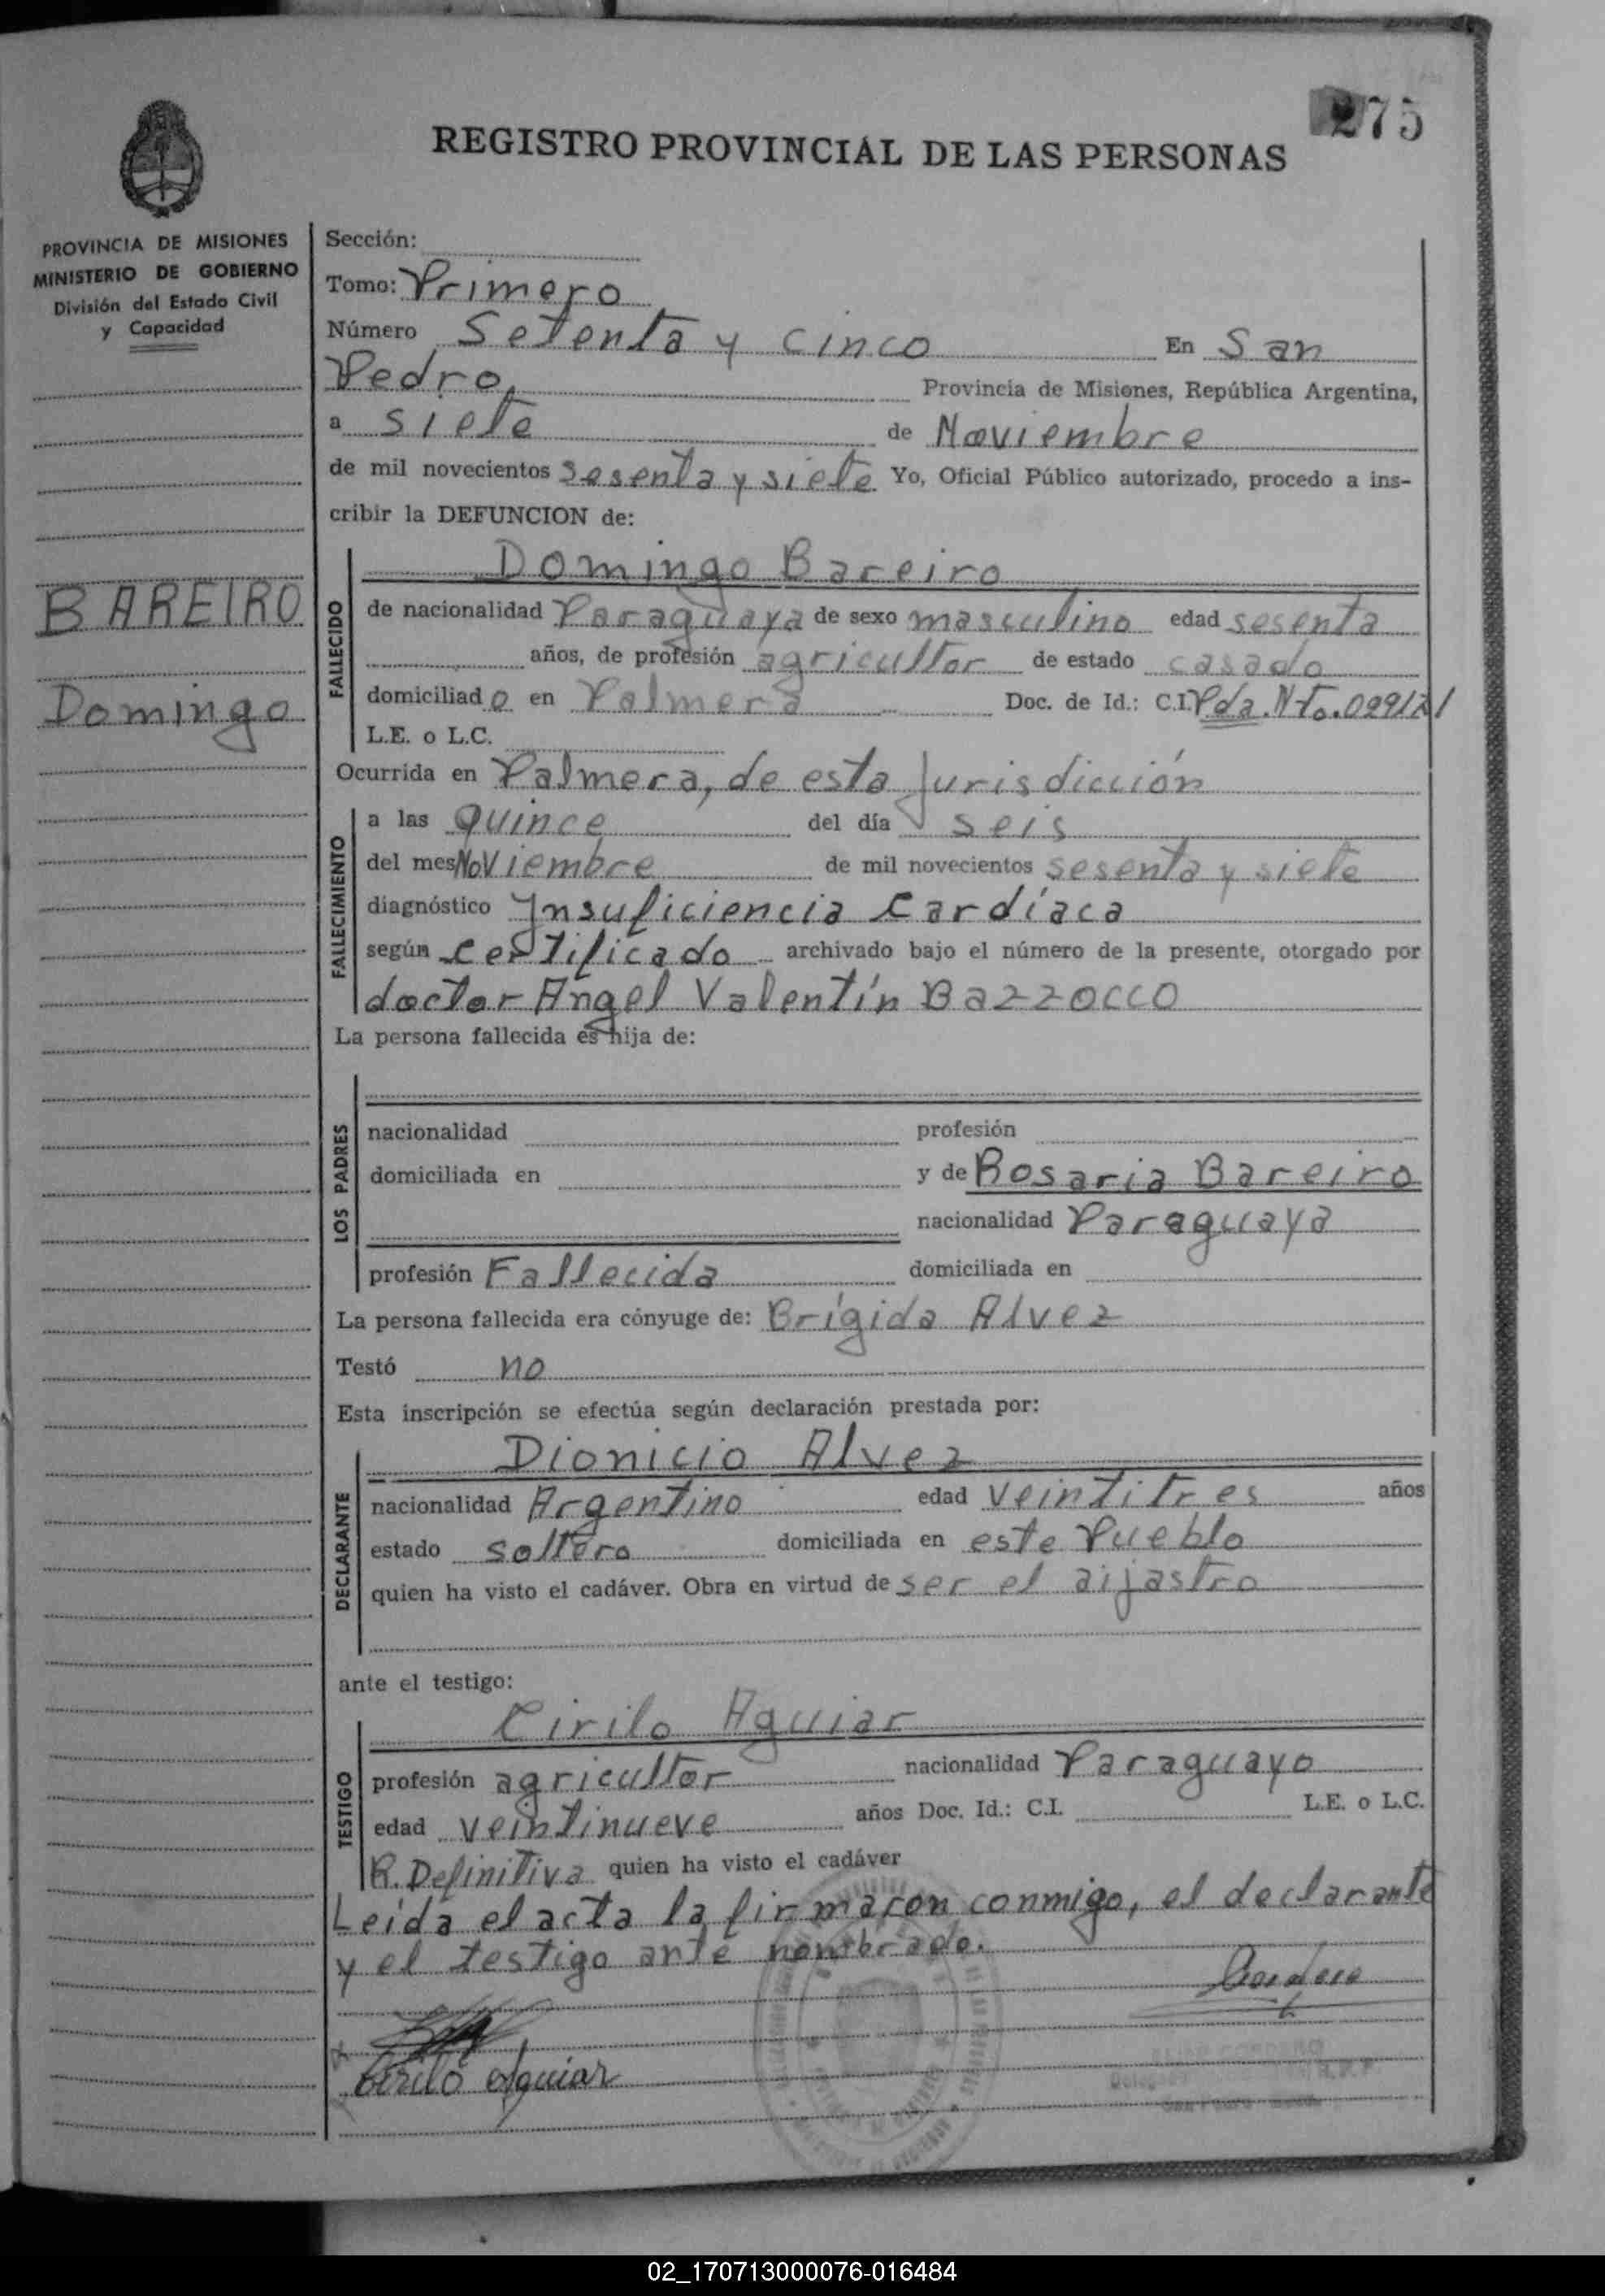 275
REGISTRO PROVINCIAL DE LAS PERSONAS
PROVINCIA DE MISIONES
MINISTERIO DE GOBIERNO
División del Estado Civil
y Capacidad
BAREIRO
Domingo
Sección:
Tomo: Primero
Número Setenta y cinco En San
Pedro, Provincia de Misiones, República Argentina,
a siete de Noviembre
de mil novecientos sesenta y siete Yo, Oficial Público autorizado, procedo a ins-
cribir la DEFUNCION de:
FALLECIDO
Domingo Bareiro
de nacionalidad Paraguaya de sexo masculino edad sesenta
años, de profesión agricultor de estado casado
domiciliado en Palmera Doc. de Id.: C.I. Pda. Nto.
L.E. o L.C.
Ocurrida en Palmera, de esta Jurisdicción
FALLECIMIENTO
a las quince del día seis
del mes Noviembre de mil novecientos sesenta y siete
diagnóstico Ynsuficiencia Cardíaca
según Certificado archivado bajo el número de la presente, otorgado por
doctor Angel Valentín Bazzocco
La persona fallecida es hija de:
LOS PADRES
nacionalidad profesión
domiciliada en y de Rosaria Bareiro
nacionalidad Paraguaya
profesión Fallecida domiciliada en
La persona fallecida era cónyuge de: Brígida Alvez
Testó no
Esta inscripción se efectúa según declaración prestada por:
DECLARANTE
Dionicio Alvez
nacionalidad Argentino edad veintitres años
estado soltero domiciliada en este Pueblo
quien ha visto el cadáver. Obra en virtud de ser el aijastro
ante el testigo:
TESTIGO
Cirilo Aguiar
profesión agricultor nacionalidad Paraguayo
edad veintinueve años Doc. Id.: C.I. L.E. o L.C.
R. Definitiva quien ha visto el cadáver
Leida el acta la firmaron conmigo, el declarante
y el testigo ante nombrado.
Cordero
Cirilo Aguiar
02_170713000076-016484